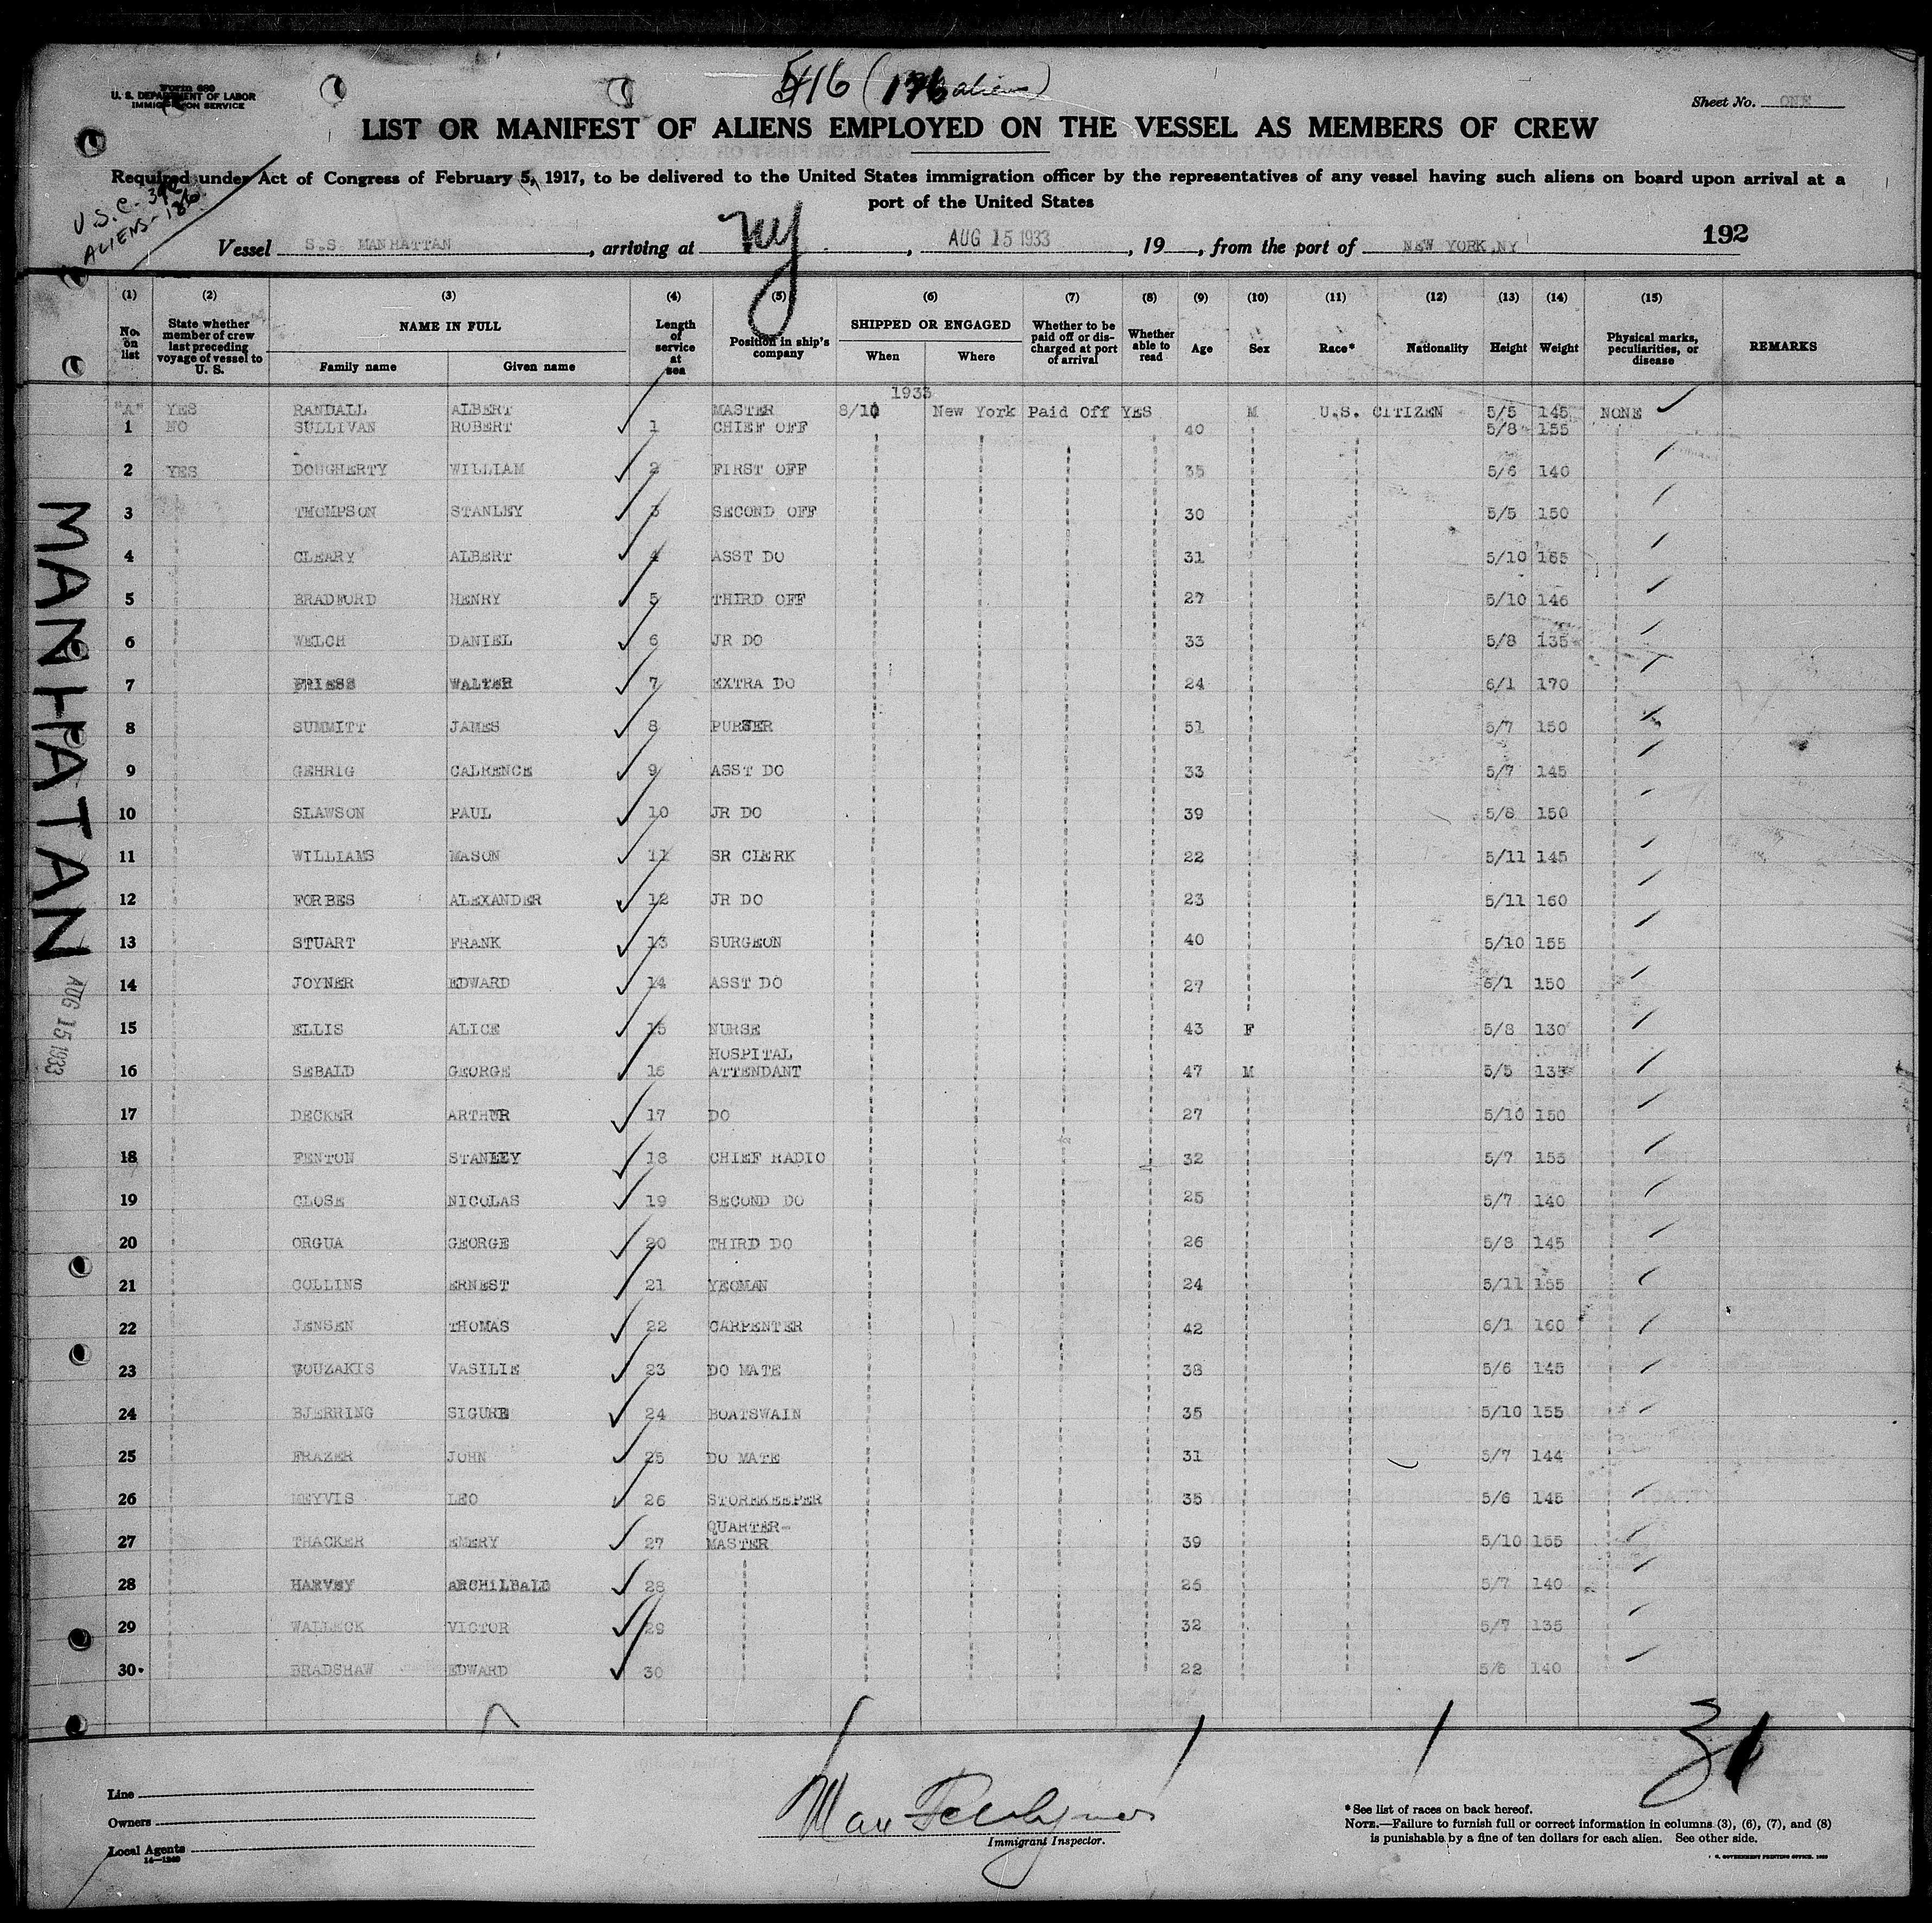 Form 689
U. S. DEPARTMENT OF LABOR
IMMIGRATION SERVICE
516 (176 aliens)
Sheet No. ONE
LIST OR MANIFEST OF ALIENS EMPLOYED ON THE VESSEL AS MEMBERS OF CREW
Required under Act of Congress of February 5, 1917, to be delivered to the United States immigration officer by the representatives of any vessel having such aliens on board upon arrival at a
port of the United States
U.S.C.-
ALIENS-
Vessel S.S. MANHATTAN, arriving at NY, AUG 15 1933, 19, from the port of NEW YORK, NY
192
(1) (2) (3) (4) (5) (6) (7) (8) (9) (10) (11) (12) (13) (14) (15)
No. on list State whether member of crew last preceding voyage of vessel to U. S. NAME IN FULL Family name Given name Length of service at sea Position in ship's company SHIPPED OR ENGAGED When Where Whether to be paid off or discharged at port of arrival Whether able to read Age Sex Race* Nationality Height Weight Physical marks, peculiarities, or disease REMARKS
1933
"A" YES RANDALL ALBERT MASTER 8/10 New York Paid Off YES M U.S. CITIZEN 5/5 145 NONE
1 NO SULLIVAN ROBERT 1 CHIEF OFF 40 5/8 155
2 YES DOUGHERTY WILLIAM 2 FIRST OFF 35 5/6 140
3 THOMPSON STANLEY 3 SECOND OFF 30 5/5 150
4 CLEARY ALBERT 4 ASST DO 31 5/10 155
5 BRADFORD HENRY 5 THIRD OFF 27 5/10 146
6 WELCH DANIEL 6 JR DO 33 5/8 135
7 FRIESS WALTER 7 EXTRA DO 24 6/1 170
8 SUMMITT JAMES 8 PURSER 51 5/7 150
9 GEHRIG CALRENCE 9 ASST DO 33 5/7 145
10 SLAWSON PAUL 10 JR DO 39 5/8 150
11 WILLIAMS MASON 11 SR CLERK 22 5/11 145
12 FORBES ALEXANDER 12 JR DO 23 5/11 160
13 STUART FRANK 13 SURGEON 40 5/10 155
14 JOYNER EDWARD 14 ASST DO 27 6/1 150
15 ELLIS ALICE 15 NURSE 43 F 5/8 130
16 SEBALD GEORGE 16 HOSPITAL ATTENDANT 47 M 5/5 135
17 DECKER ARTHUR 17 DO 27 5/10 150
18 FENTON STANLEY 18 CHIEF RADIO 32 5/7 155
19 CLOSE NICOLAS 19 SECOND DO 25 5/7 140
20 ORGUA GEORGE 20 THIRD DO 26 5/8 145
21 COLLINS ERNEST 21 YEOMAN 24 5/11 155
22 JENSEN THOMAS 22 CARPENTER 42 6/1 160
23 VOUZAKIS VASILIE 23 DO MATE 38 5/6 145
24 BJERRING SIGURD 24 BOATSWAIN 35 5/10 155
25 FRAZER JOHN 25 DO MATE 31 5/7 144
26 MEYVIS LEO 26 STOREKEEPER 35 5/6 145
27 THACKER EMERY 27 QUARTER-MASTER 39 5/10 155
28 HARVEY ARCHILBALD 28 25 5/7 140
29 WALLECK VICTOR 29 32 5/7 135
30 BRADSHAW EDWARD 30 22 5/6 140
MANHATAN
AUG 15 1933
31
Line
Owners
Local Agents
14—1240
Max
Immigrant Inspector.
*See list of races on back hereof.
NOTE.—Failure to furnish full or correct information in columns (3), (6), (7), and (8)
is punishable by a fine of ten dollars for each alien. See other side.
GOVERNMENT PRINTING OFFICE